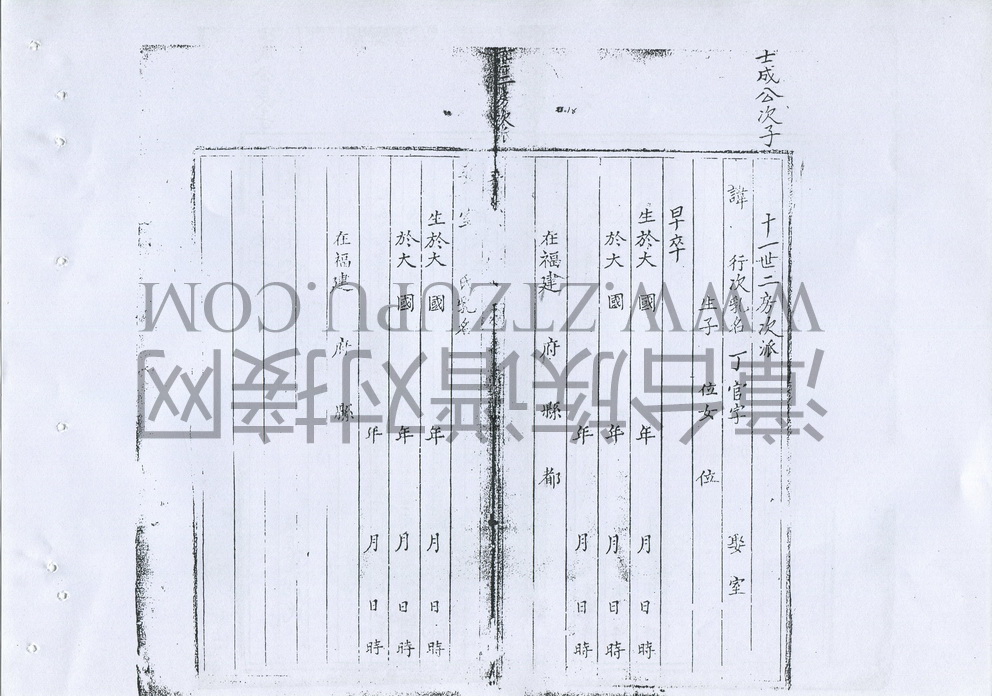 士成公次子
十一世二房次派
諱 行次乳名 丁官字 娶 室
生子 位女 位
早卒
生於大 國 年 月 日 時
於大 國 年 月 日 時
年 月 日 時
在福建 府 縣 都
二房次
室 氏乳名
生於大 國 年 月 日 時
於大 國 年 月 日 時
年 月 日 時
在福建 府 縣
WWW.ZTZUPU.COM
漳台族谱对接网